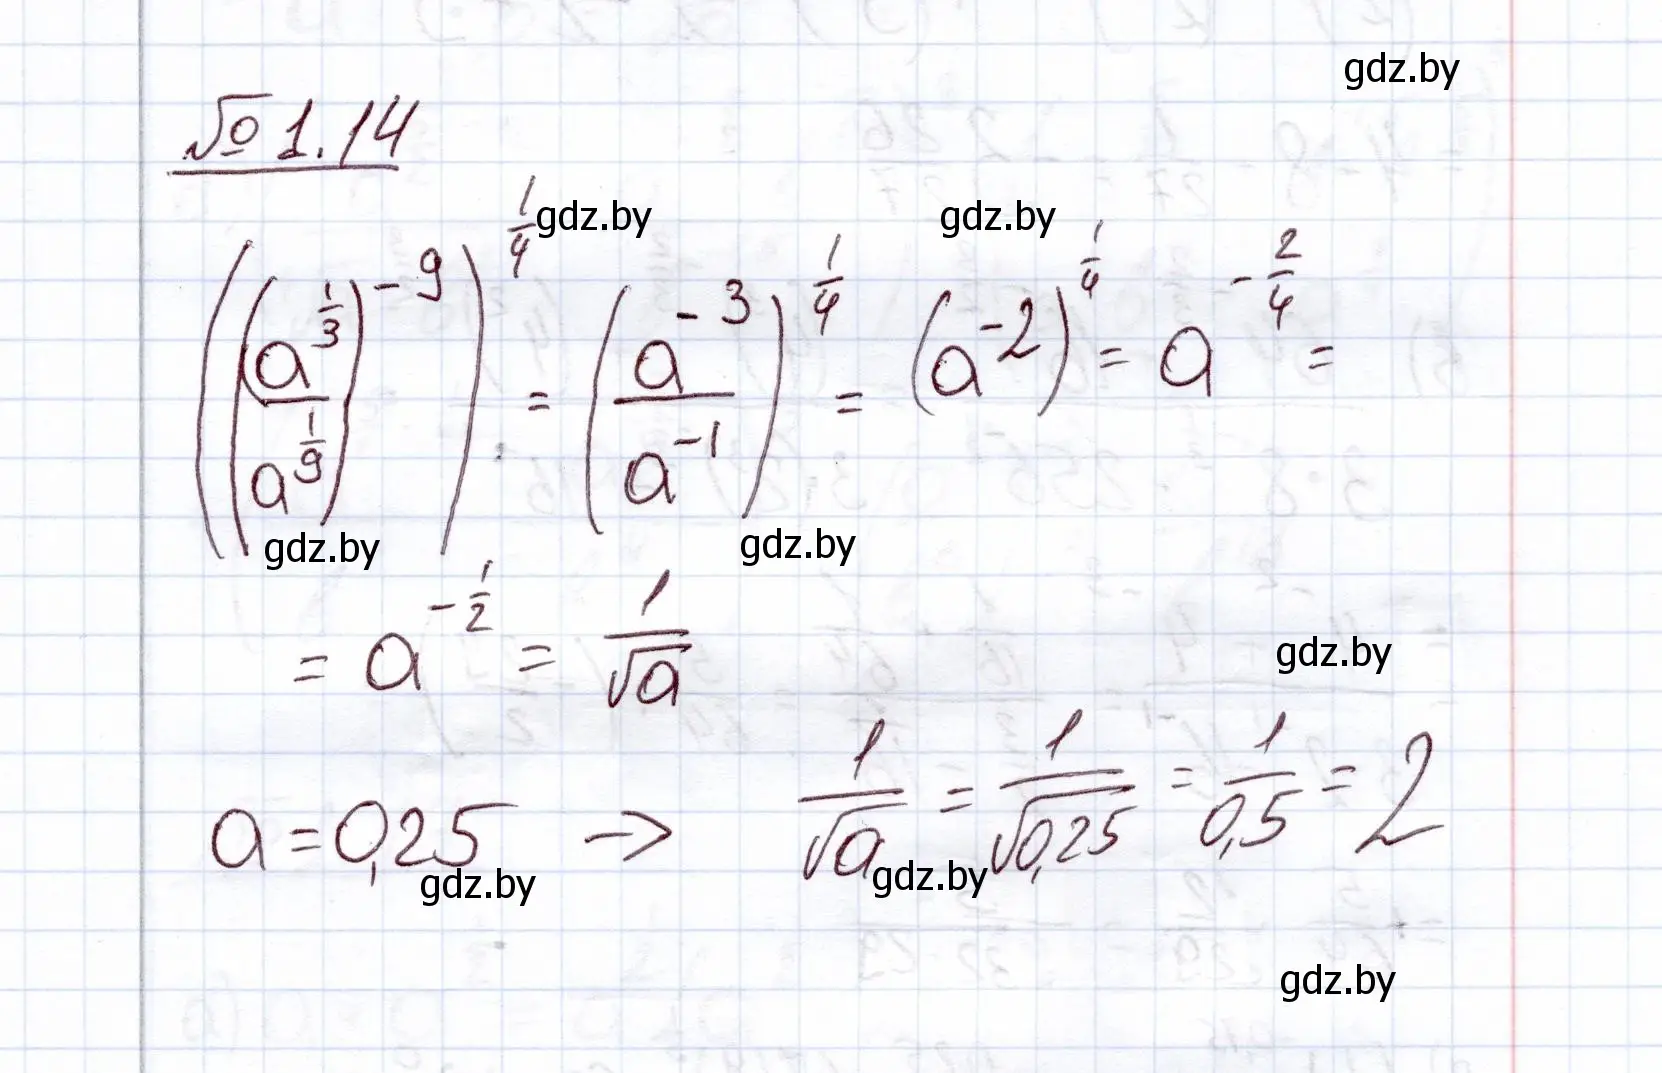 gdz.by
№ 1.14
gdz.by gdz.by
((a^(1/3) / a^(1/9))^(-9))^(1/4) = (a^(-3) / a^(-1))^(1/4) = (a^(-2))^(1/4) = a^(-2/4) =
gdz.by gdz.by
= a^(-1/2) = 1/√a
gdz.by
a = 0,25 → 1/√a = 1/√0,25 = 1/0,5 = 2
gdz.by gdz.by
gdz.by